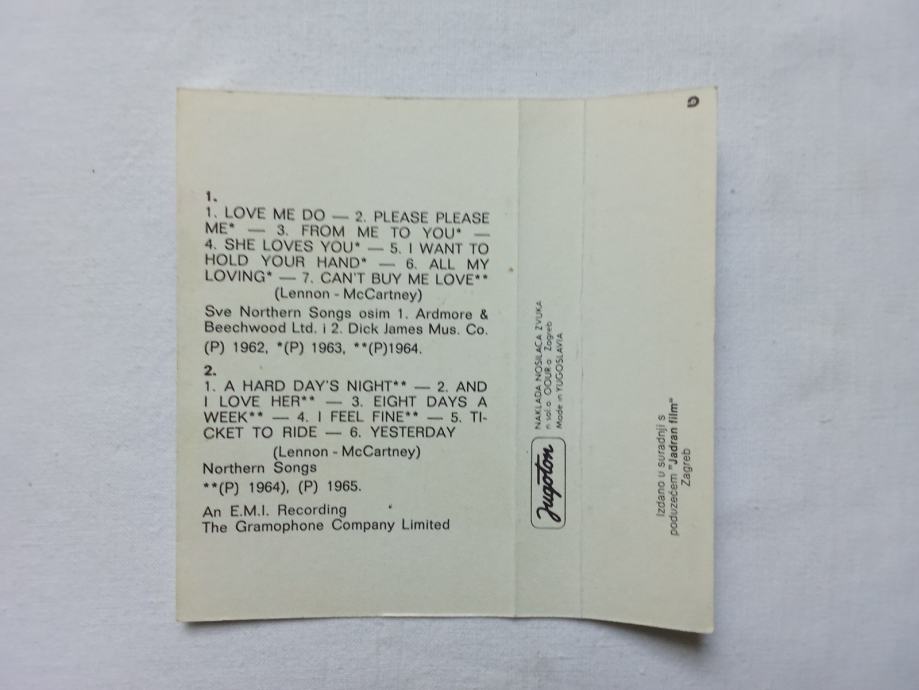 1.
1. LOVE ME DO — 2. PLEASE PLEASE
ME* — 3. FROM ME TO YOU* —
4. SHE LOVES YOU* — 5. I WANT TO
HOLD YOUR HAND* — 6. ALL MY
LOVING* — 7. CAN'T BUY ME LOVE**
(Lennon - McCartney)
Sve Northern Songs osim 1. Ardmore &
Beechwood Ltd. i 2. Dick James Mus. Co.
(P) 1962, *(P) 1963, **(P)1964.
2.
1. A HARD DAY'S NIGHT** — 2. AND
I LOVE HER** — 3. EIGHT DAYS A
WEEK** — 4. I FEEL FINE** — 5. TI-
CKET TO RIDE — 6. YESTERDAY
(Lennon - McCartney)
Northern Songs
**(P) 1964), (P) 1965.
An E.M.I. Recording
The Gramophone Company Limited
Jugoton
NAKLADA NOSILACA ZVUKA
n.sol.o. OOUR-a Zagreb
Made in YUGOSLAVIA
Izdano u suradnji s
poduzećem "Jadran film"
Zagreb